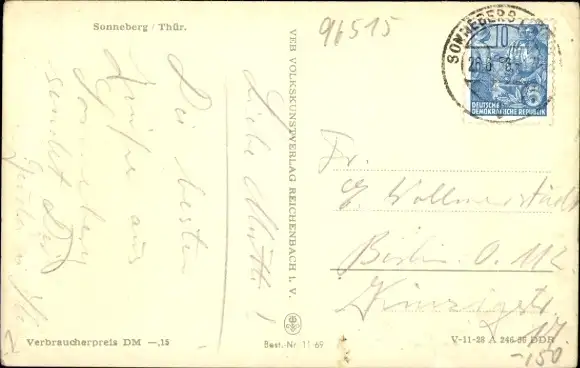 Sonneberg / Thür.
96515
SONNEBERG
10
DEUTSCHE
DEMOKRATISCHE REPUBLIK
Liebe Mutti!
Die besten
Grüße aus
Sonneberg
sendet Dir
VEB VOLKSKUNSTVERLAG REICHENBACH i. V.
Fr.
G. Wollmerstädt
Berlin O. 112
Verbraucherpreis DM —,15
Best.-Nr. 11 69
V-11-28 A 246-56 DDR
-150